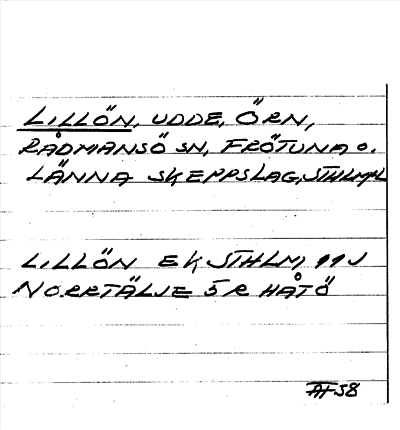 LILLÖN, UDDE, ÖRN,
RÅDMANSÖ SN, FRÖTUNA O.
LÄNNA SKEPPSLAG, STHLMS L
LILLÖN EK STHLM, 11J
NORRTÄLJE 5R HÅTÖ
AF 58